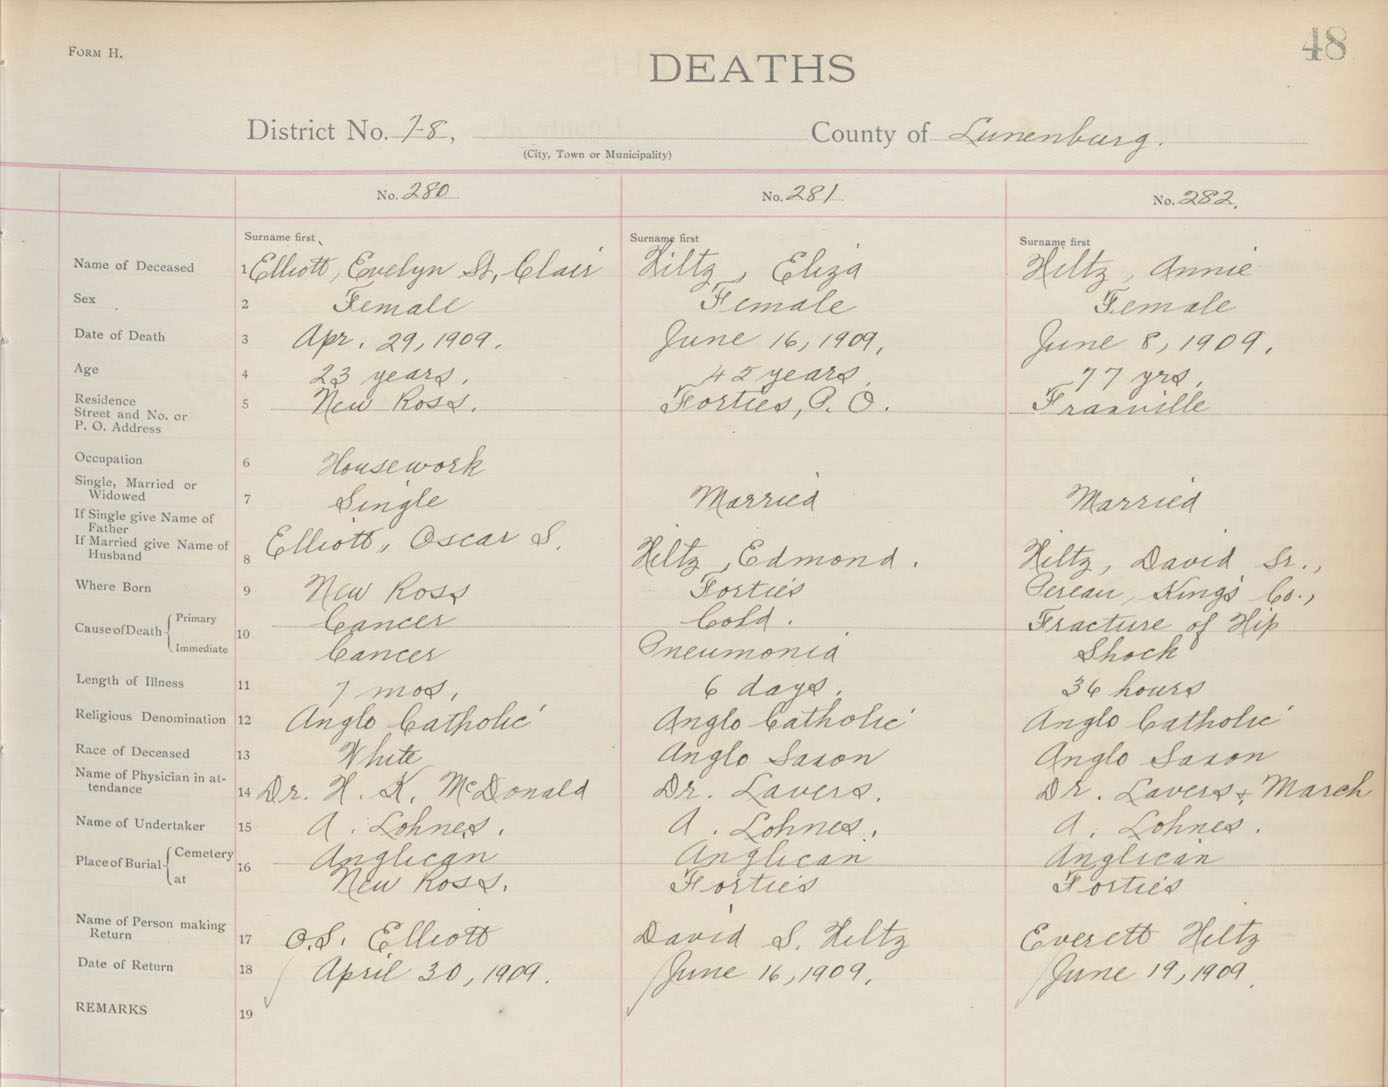 FORM H.
48
DEATHS
District No. 78, County of Lunenburg.
(City, Town or Municipality)
No. 280 No. 281 No. 282.
Surname first Surname first Surname first
Name of Deceased 1 Elliott, Evelyn St. Clair Hiltz, Eliza Hiltz, Annie
Sex 2 Female Female Female
Date of Death 3 Apr. 29, 1909. June 16, 1909. June 8, 1909.
Age 4 23 years. 42 years. 77 yrs.
Residence
Street and No. or
P. O. Address 5 New Ross. Forties, P. O. Fraxville
Occupation 6 Housework
Single, Married or
Widowed 7 Single Married Married
If Single give Name of
Father
If Married give Name of
Husband 8 Elliott, Oscar S. Hiltz, Edmond. Hiltz, David Sr.,
Where Born 9 New Ross Forties Pereau, King's Co.,
Cause of Death 10 Primary Cancer Cold. Fracture of Hip
Immediate Cancer Pneumonia Shock
Length of Illness 11 7 mos. 6 days. 36 hours
Religious Denomination 12 Anglo Catholic Anglo Catholic Anglo Catholic
Race of Deceased 13 White Anglo Saxon Anglo Saxon
Name of Physician in at-
tendance 14 Dr. H. K. McDonald Dr. Lavers. Dr. Lavers & March
Name of Undertaker 15 A. Lohnes. A. Lohnes. A. Lohnes.
Place of Burial 16 Cemetery Anglican Anglican Anglican
at New Ross. Forties Forties
Name of Person making
Return 17 O.S. Elliott David S. Hiltz Everett Hiltz
Date of Return 18 April 30, 1909. June 16, 1909. June 19, 1909.
REMARKS 19